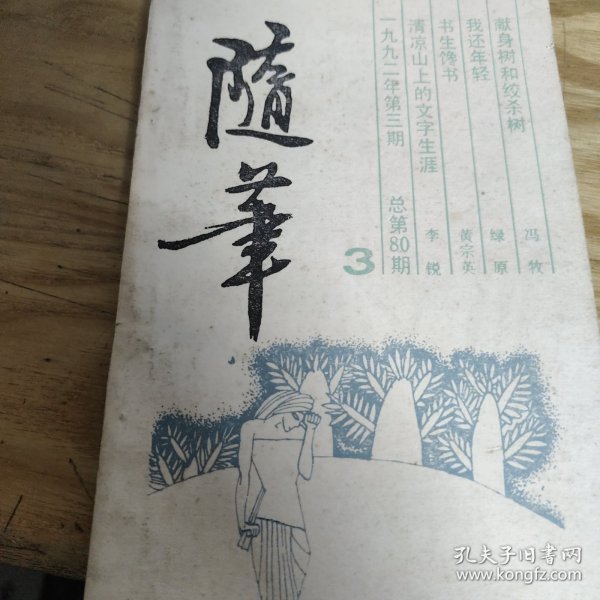 隨筆
献身树和绞杀树 冯牧
我还年轻 绿原
书生馋书 黄宗英
清凉山上的文字生涯 李锐
一九九二年第三期 总第80期
3
孔夫子旧书网
www.kongfz.com